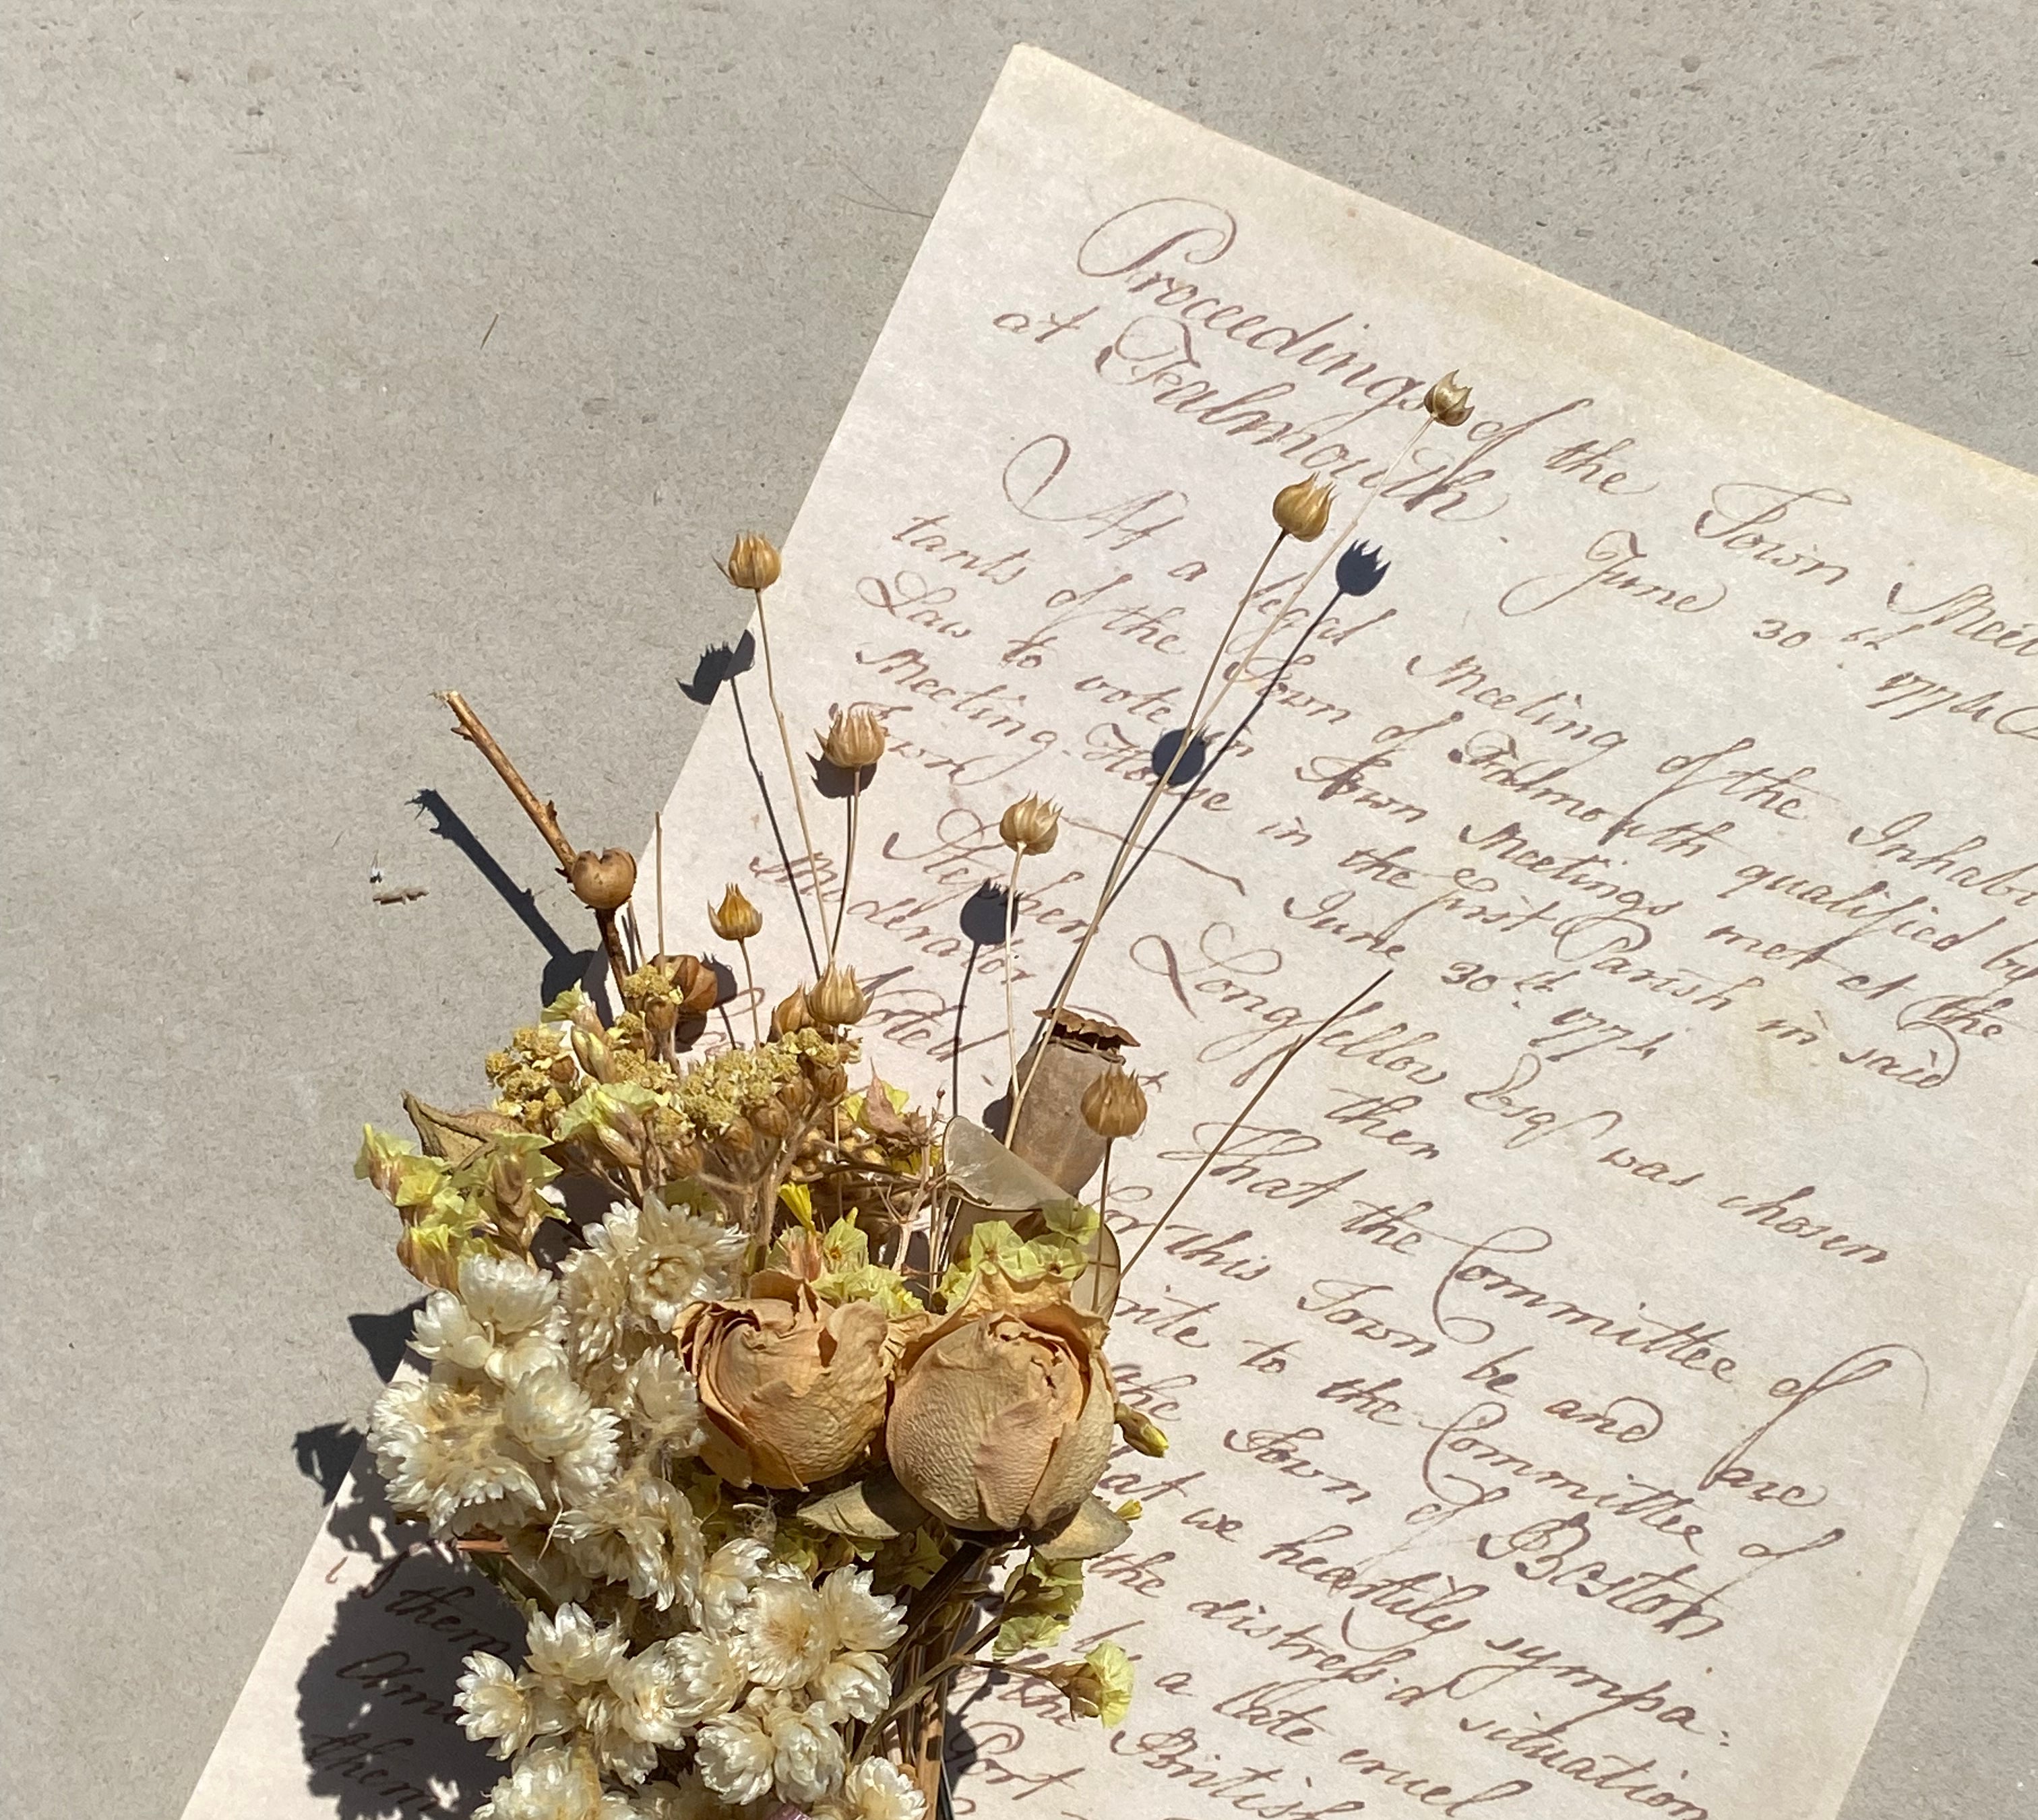 Proceedings of the Town
at Falmouth. June 30th. 1774
At a legal Meeting of the Inhabi
tants of the Town of Falmouth qualified by
Law to vote in Town Meetings met at the
Meeting-House in the first Parish in said
Town June 30th. 1774
Stephen Longfellow Esqr was chosen
Moderator then
Voted That the Committee of
for this Town be and are
to the Committee of
the Town of Boston
we heartily sympa:
the distress'd situation
by a late cruel
the British
Port
them
them